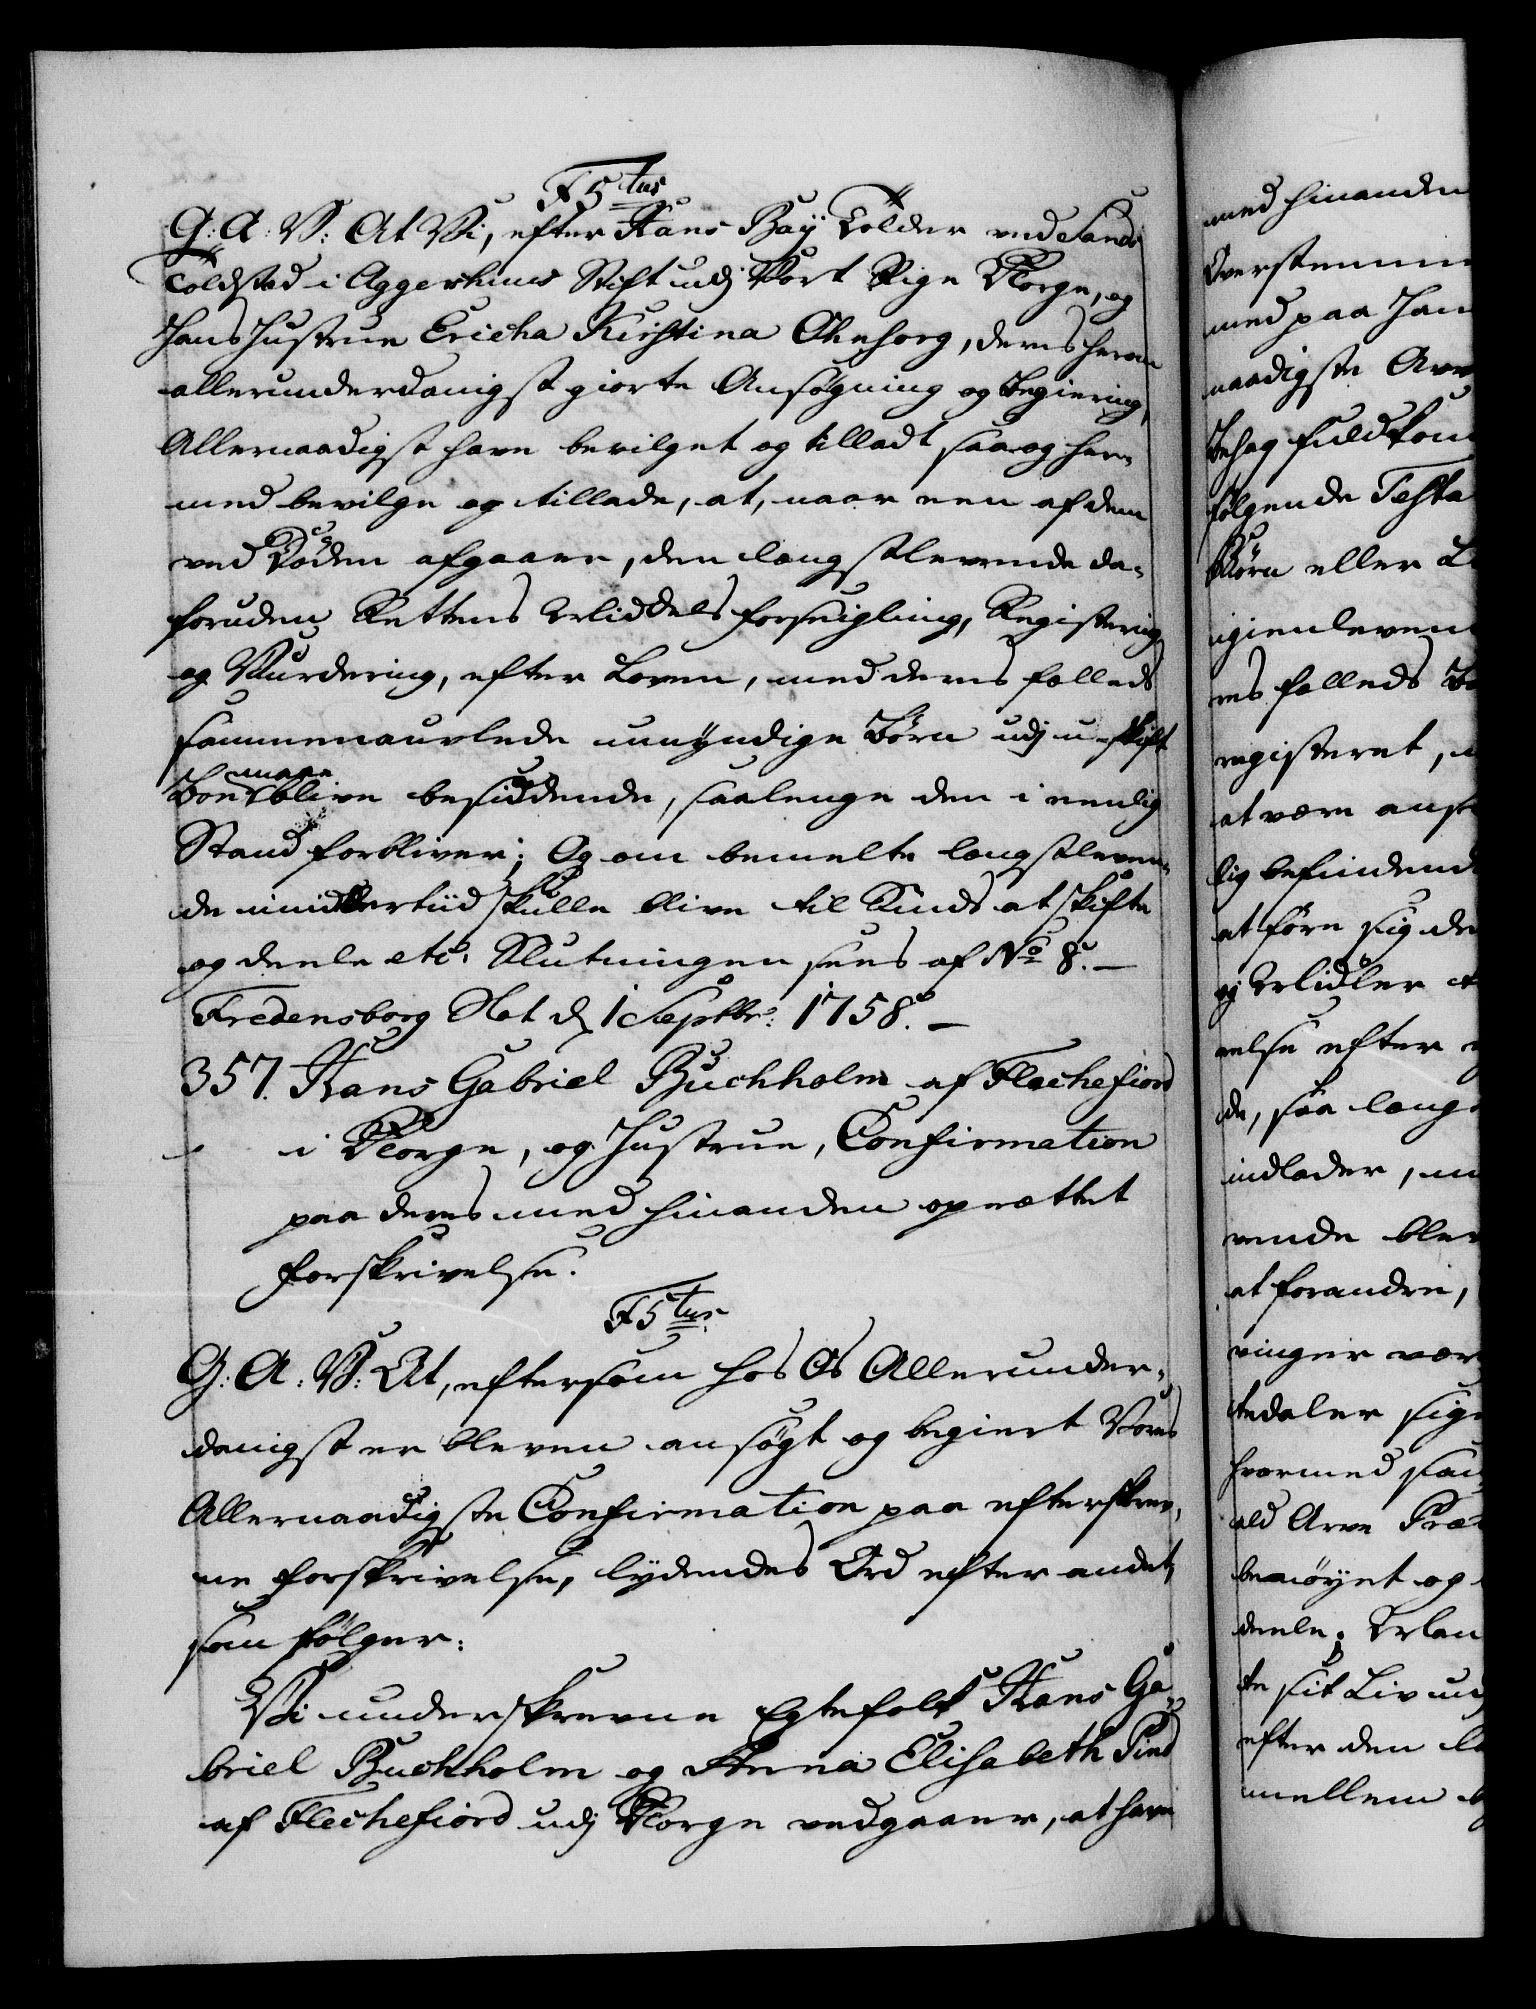 F5tus
G: A: V: At Vi, efter Hans Bay Tolder ved Sands
Toldsted i Aggershuus Stift udj Vort Rige Norge, og
Hans Hustrue Ericha Kirstina Ohnsorg, deres herom
allerunderdanigst giorte Ansøgning og Begiering,
Allernaadigst have bevilget og tilladt, saa og her-
med bevilge og tillade, at, naar een af dem
ved Døden afgaaer, den længstlevende da-
foruden Rettens Middels Forseigling, Registering
og Vurdering, efter Loven, med deres fælleds
sammenavlede umyndige Børn udj u-skift
Boe maae blive besiddende, saalenge den i eenlig
Stand forbliver; Og om bemelte længstleven-
de imidlertiid skulle blive til Sinds at skifte
og deele etc: Slutningen sees af No 8. —
Fredensborg Slot d. 1 Septbr: 1758. —
357. Hans Gabriel Buchholm af Flechefiord
i Norge, og Hustrue, Confirmation
paa deres med hinanden oprættet
Forskrivelse.
F5tus.
G: A: V: At, eftersom hos Os Allerunder-
danigst er bleven ansøgt og begiert Vores
Allernaadigste Confirmation paa efterskrev-
ne Forskrivelse, lydendes Ord efter andet,
som følger:
Vi underskrevne Egtefolk Hans Ga-
briel Buchholm og Anna Elisabeth Pind
af Flechefiord udj Norge vedgaaer, at have
med hinanden
Overstemme
med paa
naadigste
Behag fuldkom
følgende Testa
Børn eller
igienleven
res fælleds
registeret,
at være
lig befindend
at føre sig
ej Midler
velse efter
de, saa længe
indlader,
vende blev
at forandre,
ringer vær
tedaler sige
hvormed saa
ald Arve Præ
benøyet og
deele;
te sit Liv
efter den
mellem